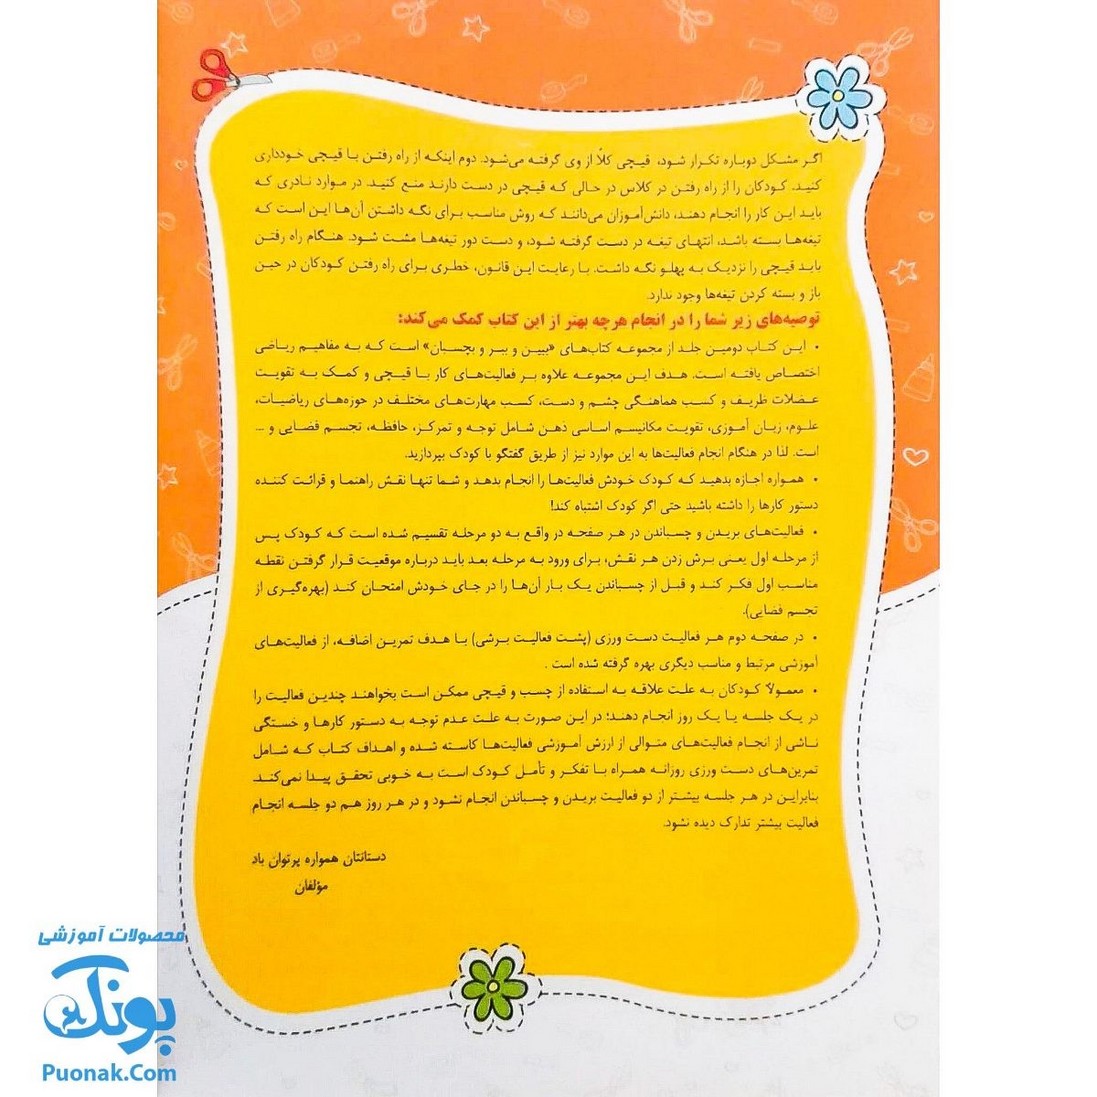 اگر مشکل دوباره تکرار شود، قیچی کلاً از وی گرفته می‌شود. دوم اینکه از راه رفتن با قیچی خودداری
کنید. کودکان را از راه رفتن در کلاس در حالی که قیچی در دست دارند منع کنید. در موارد نادری که
باید این کار را انجام دهند، دانش‌آموزان می‌دانند که روش مناسب برای نگه داشتن آن‌ها این است که
تیغه‌ها بسته باشد، انتهای تیغه در دست گرفته شود، و دست دور تیغه‌ها مشت شود. هنگام راه رفتن
باید قیچی را نزدیک به پهلو نگه داشت. با رعایت این قانون، خطری برای راه رفتن کودکان در حین
باز و بسته کردن تیغه‌ها وجود ندارد.
توصیه‌های زیر شما را در انجام هرچه بهتر از این کتاب کمک می‌کند:
• این کتاب دومین جلد از مجموعه کتاب‌های «ببین و ببر و بچسبان» است که به مفاهیم ریاضی
اختصاص یافته است. هدف این مجموعه علاوه بر فعالیت‌های کار با قیچی و کمک به تقویت
عضلات ظریف و کسب هماهنگی چشم و دست، کسب مهارت‌های مختلف در حوزه‌های ریاضیات،
علوم، زبان آموزی، تقویت مکانیسم اساسی ذهن شامل توجه و تمرکز، حافظه، تجسم فضایی و ...
است. لذا در هنگام انجام فعالیت‌ها به این موارد نیز از طریق گفتگو با کودک بپردازید.
• همواره اجازه بدهید که کودک خودش فعالیت‌ها را انجام بدهد و شما تنها نقش راهنما و قرائت کننده
دستور کارها را داشته باشید حتی اگر کودک اشتباه کند!
• فعالیت‌های بریدن و چسباندن در هر صفحه در واقع به دو مرحله تقسیم شده است که کودک پس
از مرحله اول یعنی برش زدن هر نقش، برای ورود به مرحله بعد باید درباره موقعیت قرار گرفتن نقطه
مناسب اول فکر کند و قبل از چسباندن یک بار آن‌ها را در جای خودش امتحان کند (بهره‌گیری از
تجسم فضایی).
• در صفحه دوم هر فعالیت دست ورزی (پشت فعالیت برشی) با هدف تمرین اضافه، از فعالیت‌های
آموزشی مرتبط و مناسب دیگری بهره گرفته شده است .
• معمولاً کودکان به علت علاقه به استفاده از چسب و قیچی ممکن است بخواهند چندین فعالیت را
در یک جلسه یا یک روز انجام دهند؛ در این صورت به علت عدم توجه به دستور کارها و خستگی
ناشی از انجام فعالیت‌های متوالی از ارزش آموزشی فعالیت‌ها کاسته شده و اهداف کتاب که شامل
تمرین‌های دست ورزی روزانه همراه با تفکر و تأمل کودک است به خوبی تحقق پیدا نمی‌کند.
بنابراین در هر جلسه بیشتر از دو فعالیت بریدن و چسباندن انجام نشود و در هر روز هم دو جلسه انجام
فعالیت بیشتر تدارک دیده نشود.
دستانتان همواره پرتوان باد
مؤلفان
محصولات آموزشی
پونک
Puonak.Com